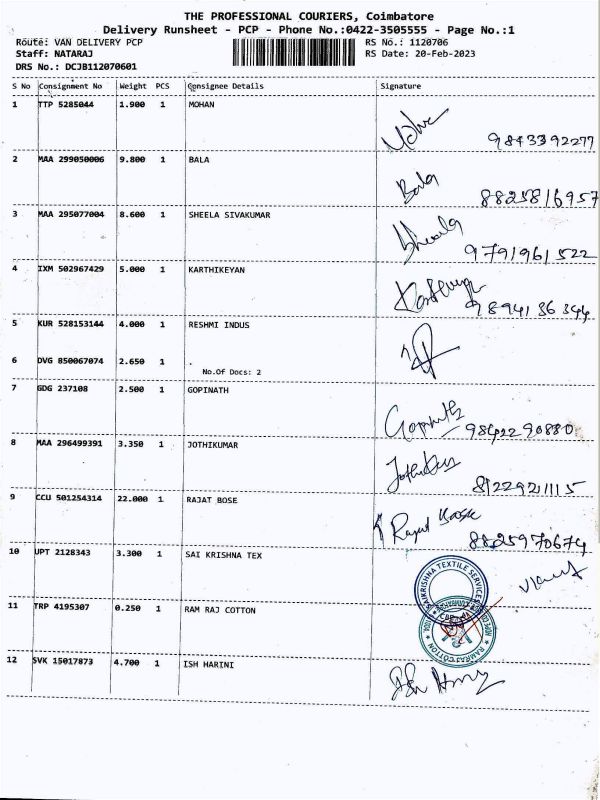 THE PROFESSIONAL COURIERS, Coimbatore
Delivery Runsheet - PCP - Phone No.:0422-3505555 - Page No.:1
Route: VAN DELIVERY PCP RS No.: 1120706
Staff: NATARAJ RS Date: 20-Feb-2023
DRS No.: DCJB112070601
S No Consignment No Weight PCS Consignee Details Signature
1 TTP 5285044 1.900 1 MOHAN
9843392277
2 MAA 299050006 9.800 1 BALA
Bala 8825816957
3 MAA 295077004 8.600 1 SHEELA SIVAKUMAR
Sheela 9791961522
4 IXM 502967429 5.000 1 KARTHIKEYAN
9894136344
5 KUR 528153144 4.000 1 RESHMI INDUS
6 DVG 850067074 2.650 1 .
No.Of Docs: 2
7 GDG 237108 2.500 1 GOPINATH
Gopinath 9842290880
8 MAA 296499391 3.350 1 JOTHIKUMAR
8122921115
9 CCU 501254314 22.000 1 RAJAT BOSE
Rajat Bose 8825970674
10 UPT 2128343 3.300 1 SAI KRISHNA TEX
11 TRP 4195307 0.250 1 RAM RAJ COTTON
RAMRAJ COTTON
12 SVK 15017873 4.700 1 ISH HARINI